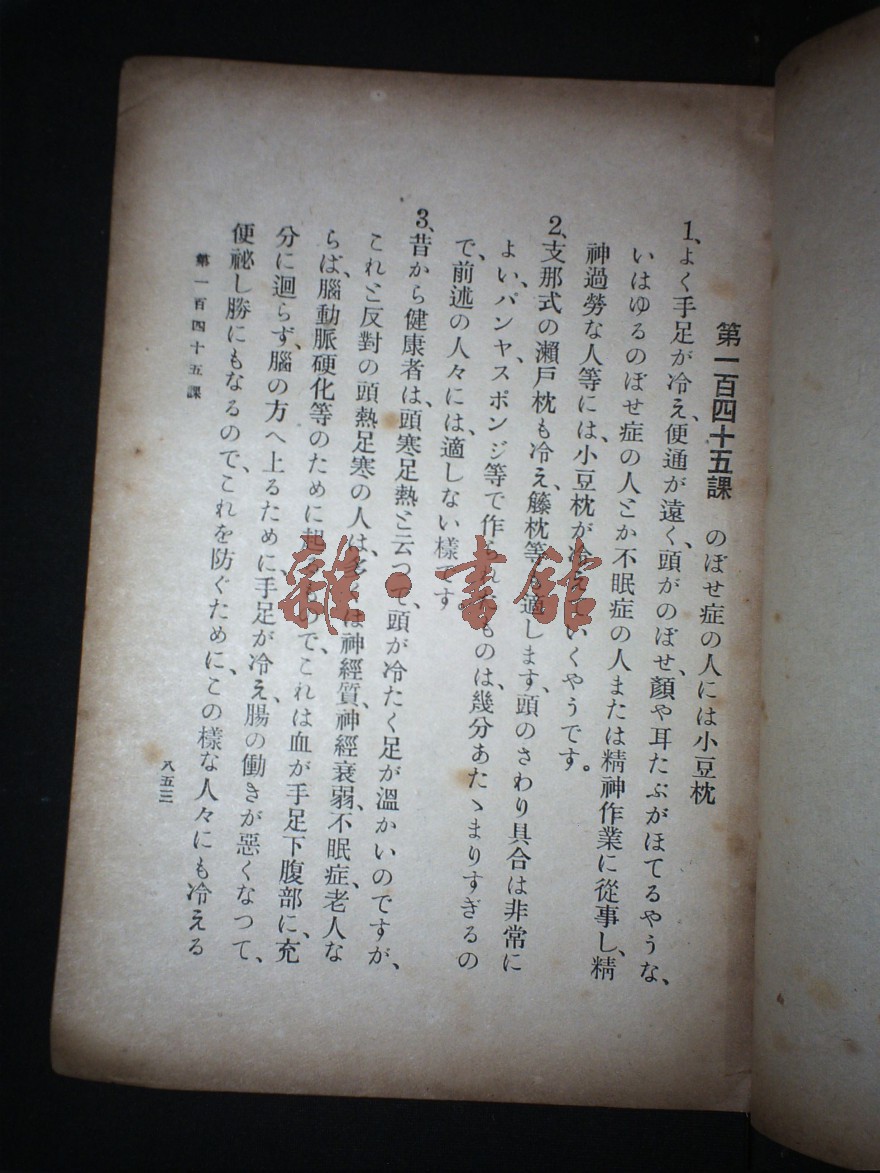 第一百四十五課　のぼせ症の人には小豆枕
1、よく手足が冷え、便通が遠く、頭がのぼせ、顏や耳たぶがほてるやうな、
いはゆるのぼせ症の人とか不眠症の人または精神作業に從事し、精
神過勞な人等には、小豆枕が冷えていくやうです。
2、支那式の瀨戸枕も冷え、籐枕等も適します、頭のさわり具合は非常に
よい、パンヤ、スポンジ等で作られたものは、幾分あたゝまりすぎるの
で、前述の人々には、適しない樣です。
3、昔から健康者は、頭寒足熱と云つて、頭が冷たく足が溫かいのですが、
これと反對の頭熱足寒の人は、多くは神經質、神經衰弱、不眠症、老人な
らば、腦動脈硬化等のために起るもので、これは血が手足下腹部に、充
分に迴らず、腦の方へ上るために、手足が冷え、腸の働きが惡くなつて、
便祕し勝にもなるので、これを防ぐために、この樣な人々にも冷える
第一百四十五課
八五三
雜・書館